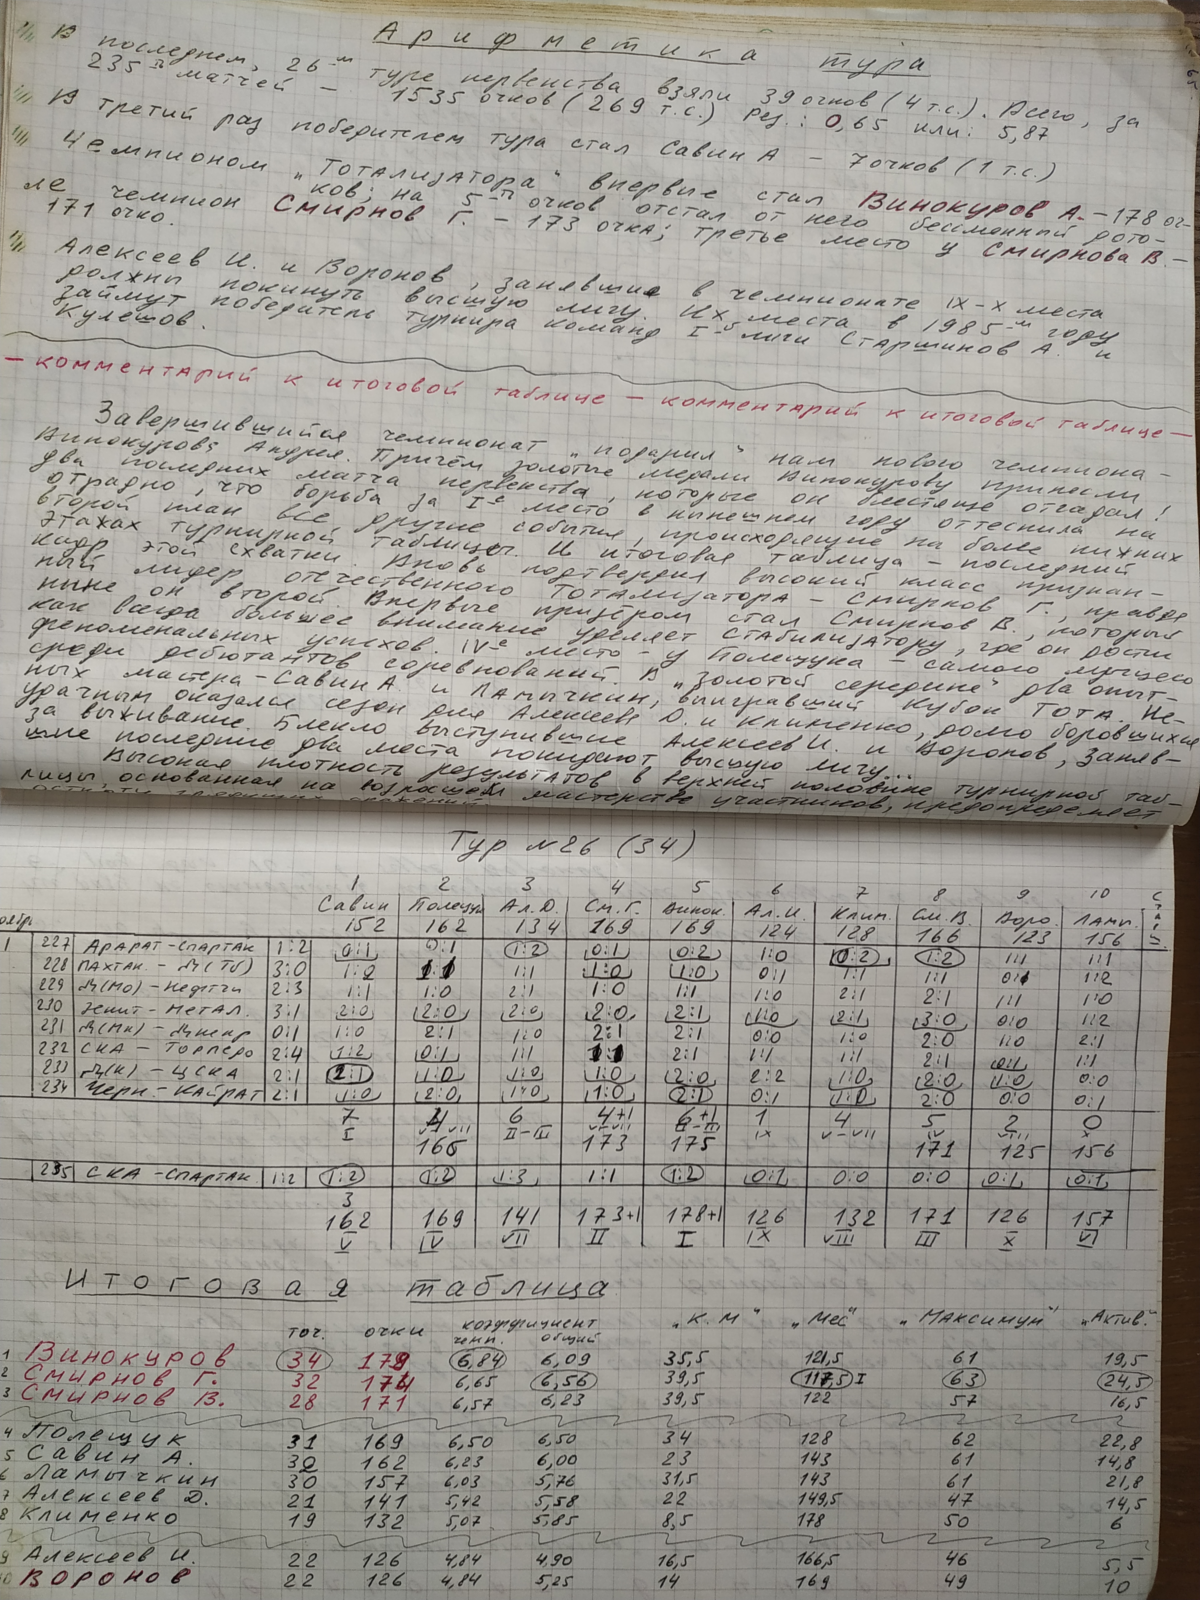 Арифметика тура
В последнем, 26-м туре первенства взяли 39 очков (4 т.с.). Всего, за
235-ть матчей – 1535 очков (269 т.с.) рез.: 0,65 или: 5,87
В третий раз победителем тура стал Савин А – 7 очков (1 т.с.)
Чемпионом „Тотализатора" впервые стал Винокуров А. – 178 оч-
ков; на 5-ть очков отстал от него бессменный дото-
ле чемпион Смирнов Г. – 173 очка; третье место у Смирнова В. –
171 очко.
Алексеев И. и Воронов, занявшие в чемпионате IX–X места
должны покинуть высшую лигу. Их места в 1985-м году
займут победители турнира команд I-й лиги Старшинов А. и
Кулешов.
– комментарий к итоговой таблице – комментарий к итоговой таблице –
Завершившийся чемпионат „подарил" нам нового чемпиона –
Винокурова Андрея. Причём золотые медали Винокурову принесли
два последних матча первенства, которые он блестяще отгадал!
Отрадно, что борьба за I-е место в нынешнем году оттеснила на
второй план все другие события, происходящие на более нижних
этажах турнирной таблицы. И итоговая таблица – последний
кадр этой схватки. Вновь подтвердил высокий класс признан-
ный лидер отечественного Тотализатора – Смирнов Г., правда
ныне он второй. Впервые призёром стал Смирнов В., который
как всегда большее внимание уделяет Стабилизатору, где он достиг
феноменальных успехов. IV-е место – у Полещука – самого лучшего
среди дебютантов соревнований. В „золотой середине" два опыт-
ных мастера – Савин А и Ламычкин, выигравший Кубок Тота. Не-
удачным оказался сезон для Алексеева Д. и Клименко, долго боровшихся
за выживание. Блекло выступившие Алексеев И. и Воронов, заняв-
шие последние два места покидают высшую лигу...
Высокая плотность результатов в верхней половине турнирной таб-
лицы, основанная на возросшем мастерстве участников, предопределяет
Тур №26 (34)
1 2 3 4 5 6 7 8 9 10
Савин Полещук Ал.Д. См.Г. Винок. Ал.И. Клим. См.В. Воро. Ламы.
152 162 134 169 169 124 128 166 123 156
1 227 Арарат – Спартак 1:2 0:1 0:1 1:2 0:1 0:2 1:0 0:2 1:2 1:1 1:1
228 Пахтак. – Д(Тб) 3:0 1:0 1:1 1:1 1:0 1:0 0:1 1:1 1:1 0:1 1:2
229 Д(Мо) – Нефтчи 2:3 1:1 1:0 2:1 1:0 1:1 1:0 2:1 2:1 1:1 1:0
230 Зенит – Метал. 3:1 2:0 2:0 2:0 2:0 2:1 1:0 2:1 3:0 0:0 1:2
231 Д(Мк) – Днепр 0:1 1:0 2:1 1:0 2:1 2:1 0:0 1:0 2:0 1:0 2:1
232 СКА – Торпедо 2:4 1:2 0:1 1:1 1:1 2:1 1:1 1:1 2:1 0:1 1:1
233 Д(К) – ЦСКА 2:1 2:1 1:0 1:0 1:0 2:0 2:2 1:0 2:0 1:0 0:0
234 Черн. – Кайрат 2:1 1:0 2:0 1:0 1:0 2:1 0:1 1:0 2:0 0:0 0:1
7 4 6 4+1 6+1 1 4 5 2 0
I V–VII II–III V–VII II–III IX V–VII IV VIII X
166 173 175 171 125 156
235 СКА – Спартак 1:2 1:2 1:2 1:3 1:1 1:2 0:1 0:0 0:0 0:1 0:1
3
162 169 141 173+1 178+1 126 132 171 126 157
V IV VII II I IX VIII III X VI
Итоговая таблица
точ. очки коэффициент чемп. общий „К.М" „Мес" „Максимум" „Актив."
1 Винокуров 34 179 6,84 6,09 35,5 121,5 61 19,5
2 Смирнов Г. 32 174 6,65 6,56 39,5 117,5 I 63 24,5
3 Смирнов В. 28 171 6,57 6,23 39,5 122 57 16,5
4 Полещук 31 169 6,50 6,50 34 128 62 22,8
5 Савин А. 30 162 6,23 6,00 23 143 61 14,8
6 Ламычкин 30 157 6,03 5,76 31,5 143 61 21,8
7 Алексеев Д. 21 141 5,42 5,58 22 149,5 47 14,5
8 Клименко 19 132 5,07 5,85 8,5 178 50 6
9 Алексеев И. 22 126 4,84 4,90 16,5 166,5 46 5,5
10 Воронов 22 126 4,84 5,25 14 169 49 10